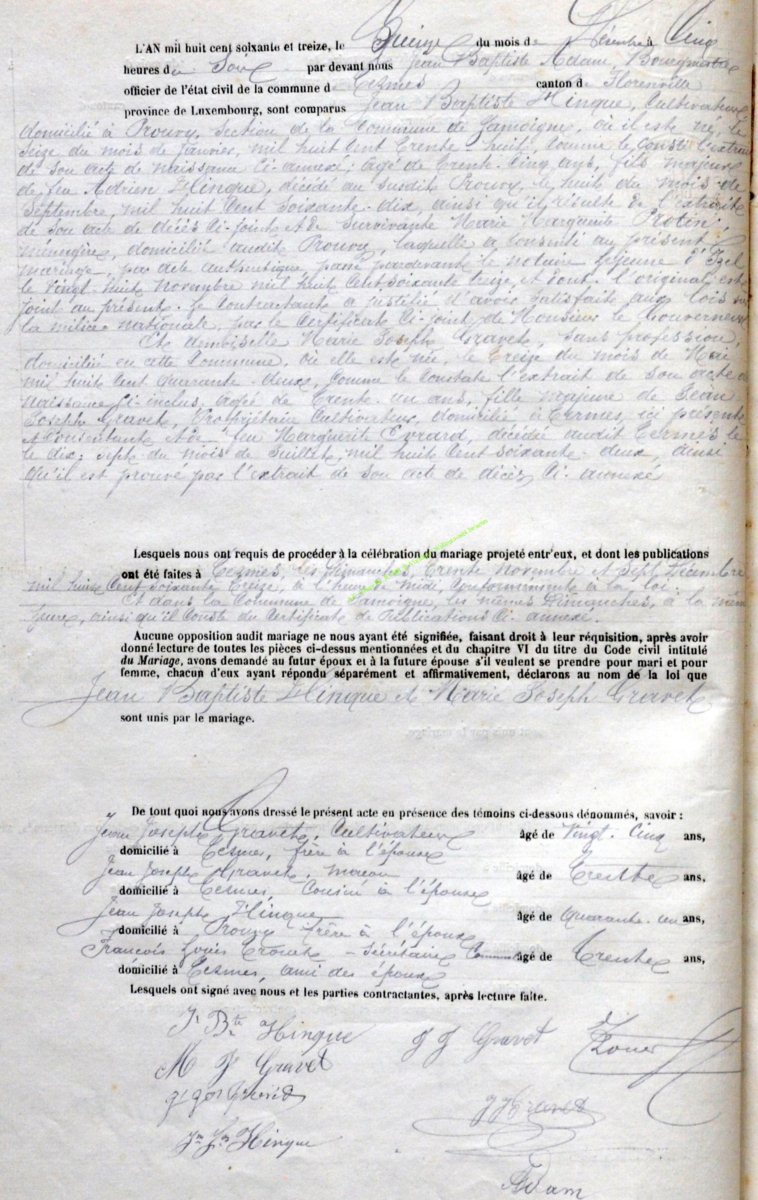 L'AN mil huit cent soixante et treize, le Quinze du mois de Décembre à Cinq
heures du Soir par devant nous Jean Baptiste Adam, Bourgmestre
officier de l'état civil de la commune de Termes canton de Florenville
province de Luxembourg, sont comparus Jean Baptiste Hinque, Cultivateur
domicilié à Prouvy, Section de la Commune de Jamoigne, où il est né, le
seize du mois de Janvier, mil huit Cent trente-huit, comme le Const. l'extrait
de son acte de naissance Ci-annexé; agé de trente-Cinq ans, fils majeur
de feu Adrien Hinque, décédé au susdit Prouvy, le huit du mois de
Septembre, mil huit Cent soixante-dix, ainsi qu'il résulte de l'extrait
de son acte de décès Ci-joint, et de survivante Marie Marguerite Protin
ménagère, domiciliée audit Prouvy, laquelle a Consenti au présent
mariage, par acte authentique, passé pardevant le notaire Lejeune à Izel
le vingt huit novembre mil huit Cent soixante treize, et dont l'original est
joint au présent. Le Contractant a justifié d'avoir satisfait aux lois sur
la milice nationale, par le Certificat Ci-joint de Monsieur le Gouverneur
Et demoiselle Marie Joseph Gravet, sans profession,
domiciliée en cette Commune, où elle est née, le treize du mois de Mai
mil huit Cent quarante-deux, comme le Constate l'extrait de son acte de
naissance Ci-inclus, agée de trente-un ans, fille majeure de Jean
Joseph Gravet, Propriétaire Cultivateur, domicilié à Termes, ici présent
et Consentant et de feu Marguerite Evrard, décédée audit Termes le
le dix-sept du mois de Juillet, mil huit Cent soixante-deux, ainsi
qu'il est prouvé par l'extrait de son acte de décès Ci-annexé
Lesquels nous ont requis de procéder à la célébration du mariage projeté entr'eux, et dont les publications
ont été faites à Termes, les Dimanches, trente novembre et sept Décembre
mil huit Cent soixante treize, à l'heure de midi, Conformément à la loi.
Et dans la Commune de Jamoigne, les mêmes Dimanches, à la même
heure, ainsi qu'il Conste du Certificat de Publications Ci-annexé.
Aucune opposition audit mariage ne nous ayant été signifiée, faisant droit à leur réquisition, après avoir
donné lecture de toutes les pièces ci-dessus mentionnées et du chapitre VI du titre du Code civil intitulé
du Mariage, avons demandé au futur époux et à la future épouse s'il veulent se prendre pour mari et pour
femme, chacun d'eux ayant répondu séparément et affirmativement, déclarons au nom de la loi que
Jean Baptiste Hinque et Marie Joseph Gravet
sont unis par le mariage.
De tout quoi nous avons dressé le présent acte en présence des témoins ci-dessous dénommés, savoir :
Jean Joseph Gravet, Cultivateur âgé de Vingt-Cinq ans,
domicilié à Termes, frère à l'épouse
Jean Joseph Gravet, maçon âgé de Trente ans,
domicilié à Termes Cousin à l'épouse
Jean Joseph Hinque âgé de Quarante-un ans,
domicilié à Prouvy frère à l'époux
François Louis - Secrétaire Communal âgé de Trente ans,
domicilié à Termes, ami des époux
Lesquels ont signé avec nous et les parties contractantes, après lecture faite.
J. Bte Hinque J J Gravet
M J Gravet
Jn Jh Hinque
Adam